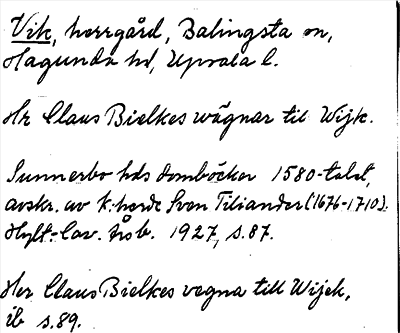 Vik, herrgård, Balingsta sn,
Hagunda hd, Upsala l.
Hr Claus Bielkes wägnar til Wijk.
Sunnerbo hds domböcker 1580-talet,
avskr. av k:herde Sven Tiliander (1676-1710).
Hylt.-Cav. årsb. 1927, s.87.
Her Claus Bielkes vegna till Wijek,
ib s.89.